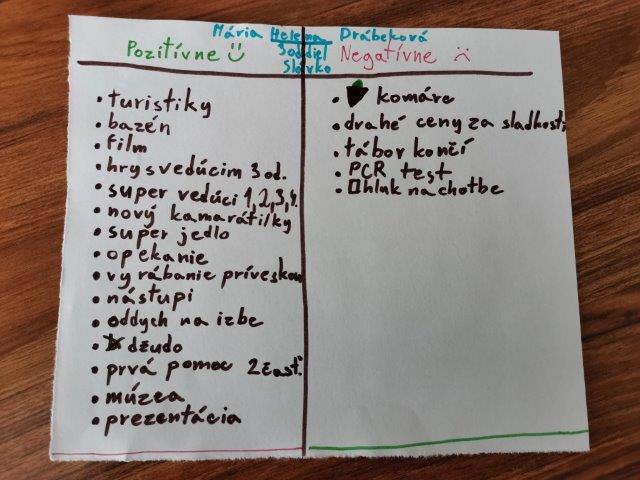 Mária Helena Drábeková
3oddiel
Slávko
Pozitívne
• turistiky
• bazén
• film
• hry s vedúcim 3 od.
• super vedúci 1,2,3,4.
• nový kamaráti/ky
• super jedlo
• opekanie
• vyrábanie príveskov
• nástupi
• oddych na izbe
• džudo
• prvá pomoc 2časť.
• múzea
• prezentácia
Negatívne
• komáre
• drahé ceny za sladkosti
• tábor končí
• PCR test
• hluk na chotbe